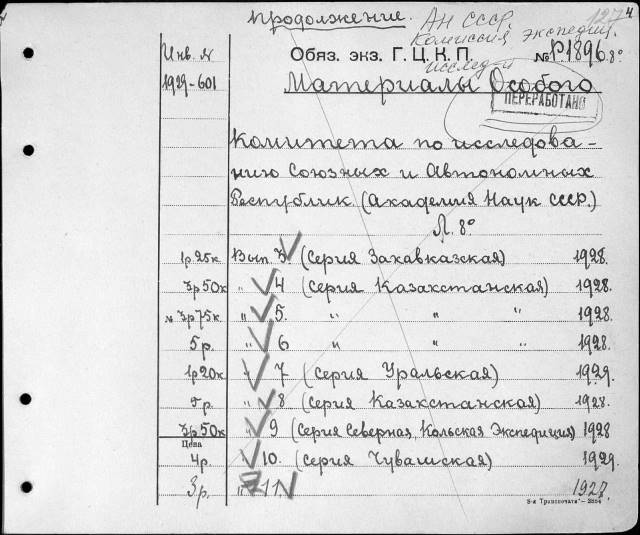 Продолжение. АН СССР 127 4
Комиссия экспедиц.
исслед-й
Инв. № Обяз. экз. Г.Ц.К.П. № Р.1896 8°
1929-601 Материалы Особого
ПЕРЕРАБОТАНО
Комитета по исследова-
нию Союзных и Автономных
Республик. (Академия Наук СССР.)
Л. 8°
1р.25к. Вып. 3. (Серия Закавказская) 1928.
3р50к. " 4 (Серия Казакстанская) 1928.
№ 3р75к. " 5. " " " 1928.
5р. " 6 " " " 1928.
1р20к " 7 (Серия Уральская) 1929.
" 8 (Серия Казакстанская) 1928.
3р50к " 9 (Серия Северная, Кольская Экспедиция) 1928
Цена
4р. " 10. (Серия Чувашская) 1929.
3р. " 11 1927.
8-я Транспечать — 3864